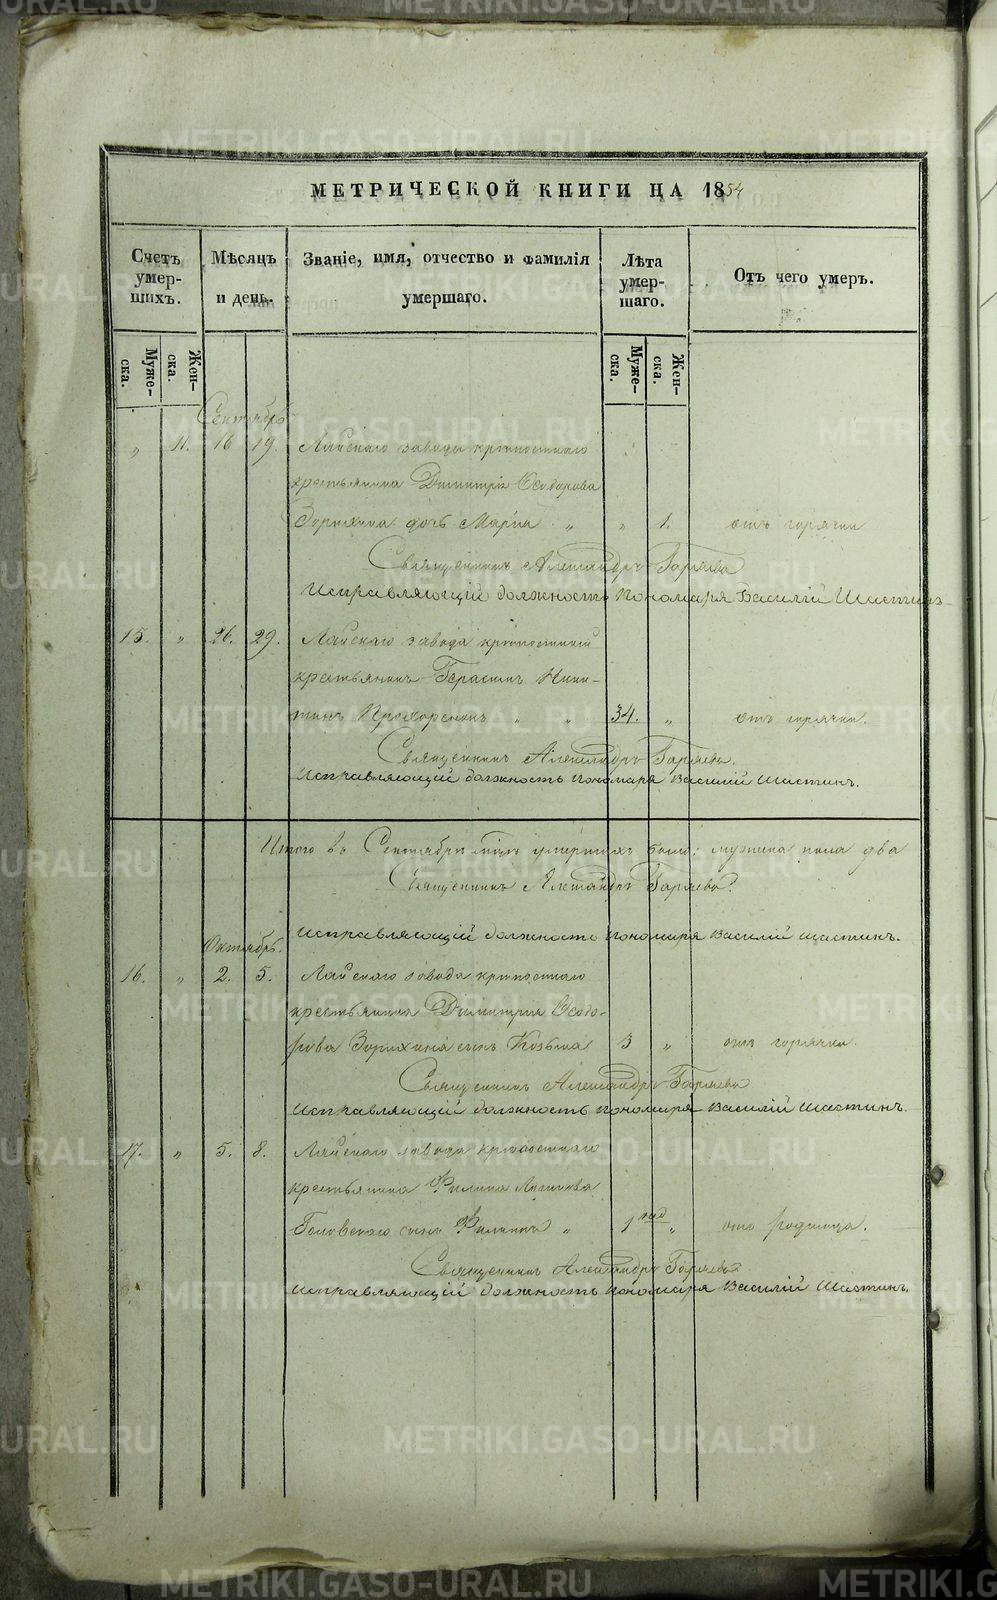 МЕТРИЧЕСКОЙ КНИГИ НА 1854
Счетъ умер-шихъ.
Мѣсяцъ и день.
Званіе, имя, отчество и фамилія умершаго.
Лѣта умер-шаго.
Отъ чего умеръ.
Муже-ска.
Жен-ска.
Муже-ска.
Жен-ска.
Сентябрь
„ 11. 16 19. Лайскаго завода крѣпостнаго
крестьянина Димитрія Ѳеодорова
дочь Марія „ „ 1. отъ горячки
Священникъ Александръ Гаряевъ
Исправляющій должность Пономаря Василій Шастинъ
15. „ 26. 29. Лайскаго завода крѣпостный
крестьянинъ Герасимъ Ники-
тинъ „ „ 34. „ отъ горячки.
Священникъ Александръ Гаряевъ.
Исправляющій должность пономаря Василій Шастинъ.
Итого въ Сентябрѣ мцѣ умершихъ было: мужеска пола два
Священникъ Александръ Гаряевъ.
Исправляющій должность пономаря Василій Шастинъ.
Октябрь.
16. „ 2. 5. Лайскаго завода крѣпостнаго
крестьянина Димитрія Ѳеодо-
рова Зорихина сынъ Козьма 3 „ отъ горячки.
Священникъ Александръ Гаряевъ
Исправляющій должность пономаря Василій Шастинъ.
17. „ 5. 8. Лайскаго завода крѣпостнаго
крестьянина Филипа
сынъ Филиппъ „ 1 нед „ отъ родимца.
Священникъ Александръ Гаряевъ
Исправляющій должность пономаря Василій Шастинъ.
METRIKI.GASO-URAL.RU